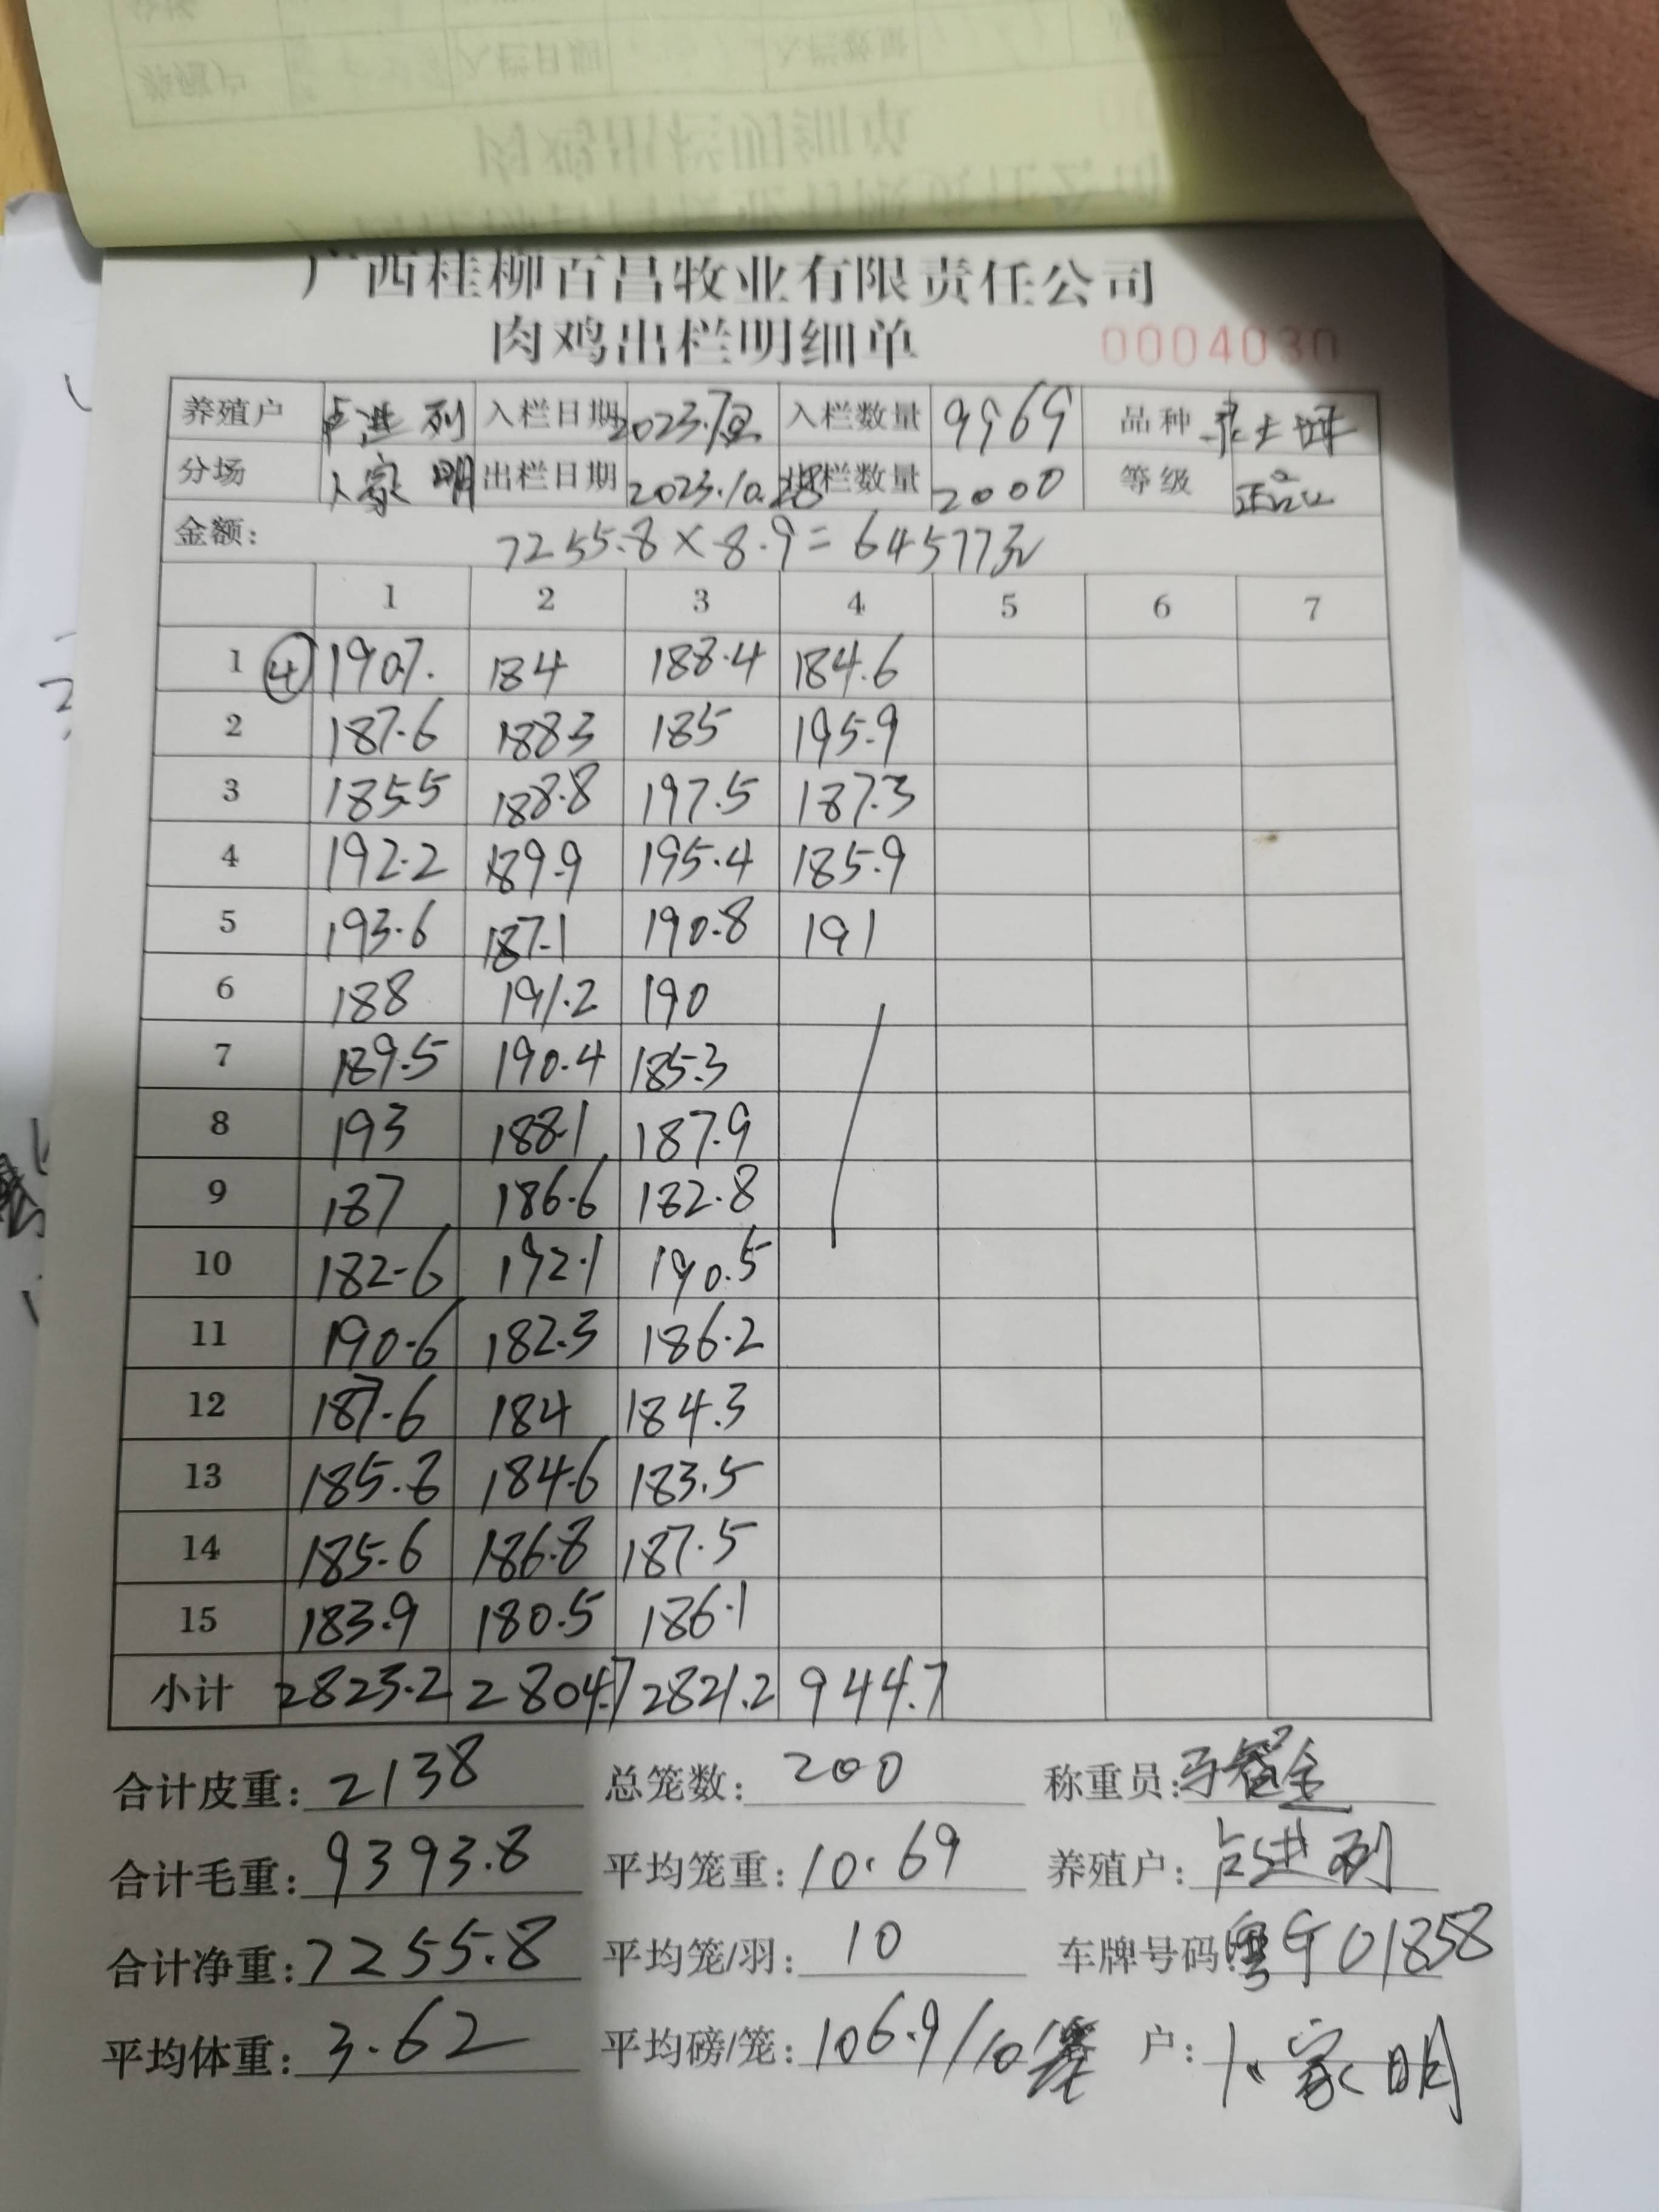 广西桂柳百昌牧业有限责任公司
肉鸡出栏明细单 0004030
养殖户 卢进列 入栏日期 2023.7 入栏数量 9969 品种
分场 卜家明 出栏日期 2023.10.28 出栏数量 2000 等级 正品
金额: 7255.8×8.9=64577元
1 2 3 4 5 6 7
1 ④ 190.7. 184 188.4 184.6
2 187.6 188.3 185 195.9
3 185.5 188.8 197.5 187.3
4 192.2 189.9 195.4 185.9
5 193.6 187.1 190.8 191
6 188 191.2 190
7 189.5 190.4 185.3
8 193 188.1 187.9
9 187 186.6 182.8
10 182.6 192.1 190.5
11 190.6 182.3 186.2
12 187.6 184 184.3
13 185.8 184.6 183.5
14 185.6 186.8 187.5
15 183.9 180.5 186.1
小计 2823.2 2804.7 2821.2 944.7
合计皮重: 2138 总笼数: 200 称重员:
合计毛重: 9393.8 平均笼重: 10.69 养殖户:
合计净重: 7255.8 平均笼/羽: 10 车牌号码: 粤 01858
平均体重: 3.62 平均磅/笼: 106.9/10 户: 卜家明